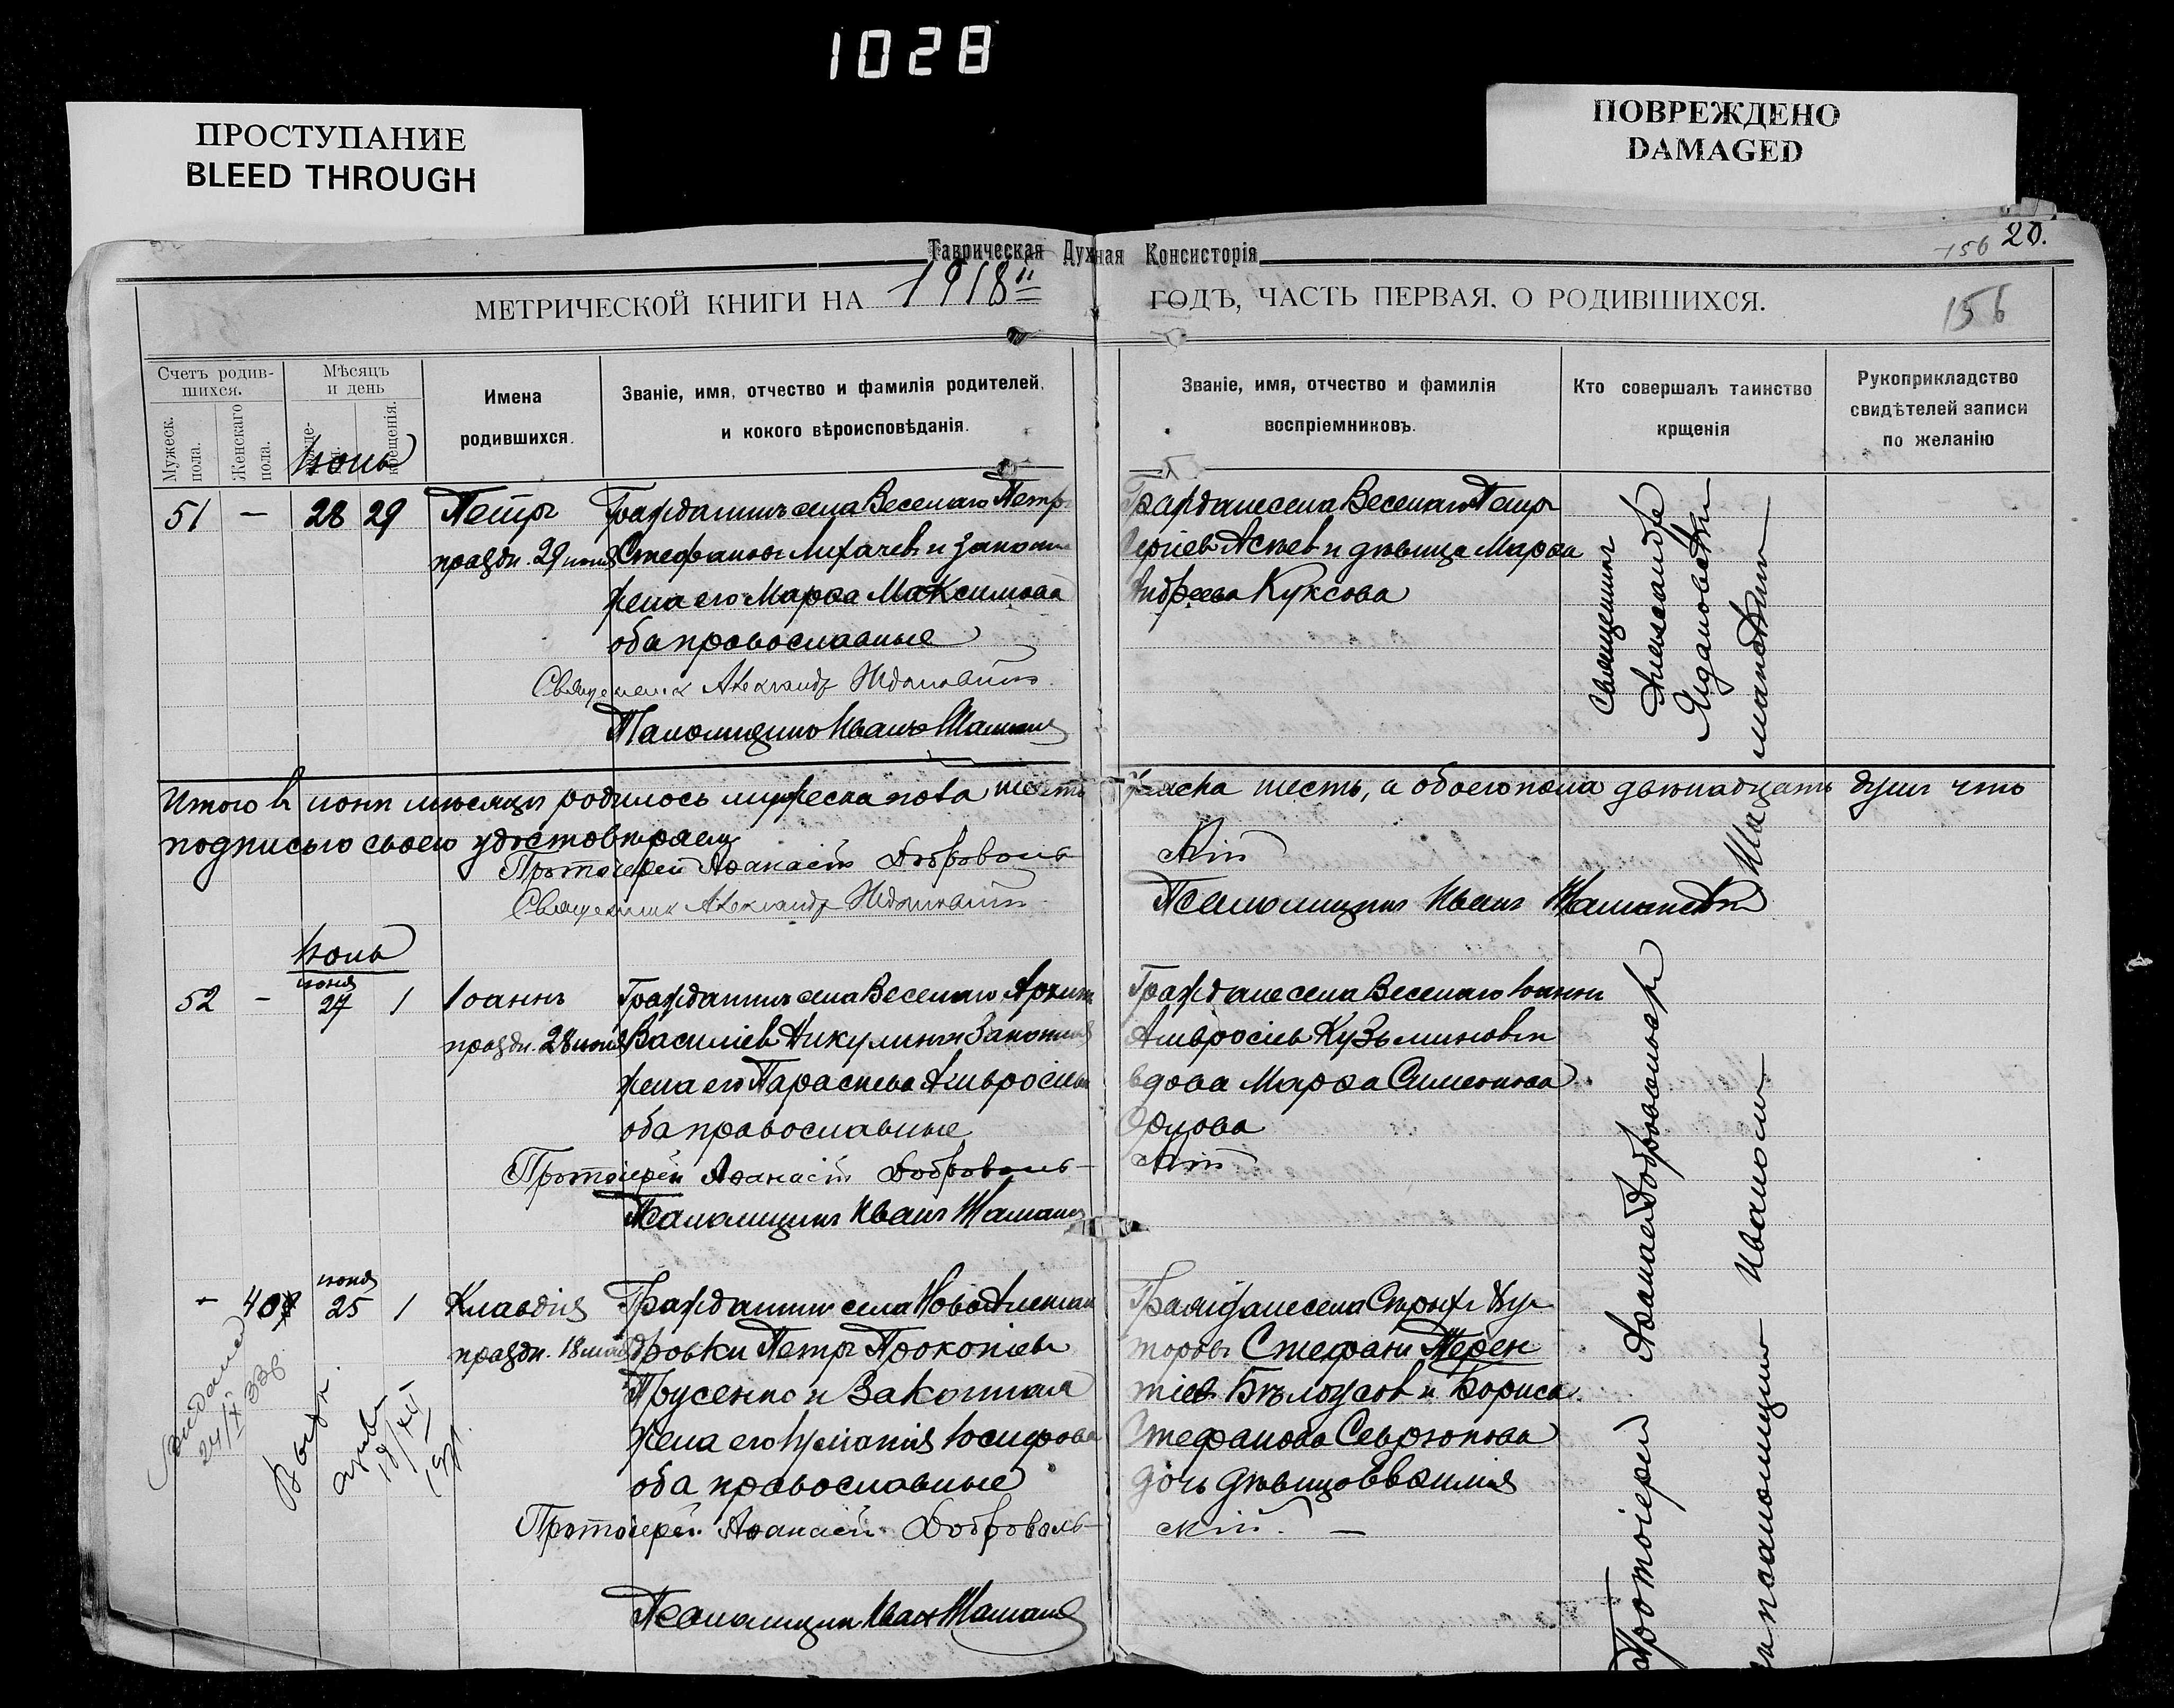 1028
ПРОСТУПАНИЕ
BLEED THROUGH
ПОВРЕЖДЕНО
DAMAGED
Таврическая Духная Консисторія
156 20.
МЕТРИЧЕСКОЙ КНИГИ НА 1918 ГОДЪ, ЧАСТЬ ПЕРВАЯ, О РОДИВШИХСЯ.
156
Счетъ родив-
шихся.
Мужеск.
пола.
Женскаго
пола.
Мѣсяцъ
и день
крещенія.
Июнь
Имена
родившихся.
Званіе, имя, отчество и фамилія родителей,
и кокого вѣроисповѣданія.
Званіе, имя, отчество и фамилія
воспріемниковъ.
Кто совершалъ таинство
крщенія
Рукоприкладство
свидѣтелей записи
по желанію
51 — 28 29 Петръ
праздн. 29 июня
Гражданинъ села Веселаго Петръ
Стефановъ Лихачевъ и законн
жена его Марѳа Максимова
оба православные
Священник Александр
Псаломщикъ Иванъ
Граждане села Веселаго Петръ
и дѣвица Марѳа
Андреева Куксова
Священникъ
Александръ
Итого въ июнѣ мѣсяцѣ родилось мужеска пола шесть женска шесть, а обоего пола двѣнадцать душъ что
подписью своею удостовѣряемъ
Протоіерей Аѳанасій Добровольскій
Священник Александр
Псаломщикъ Иванъ
Июль
52 - июня 27 1 Іоаннъ
праздн. 28 июня
Гражданинъ села Веселаго
Василіев Никулинъ и законная
жена его Параскева Амвросіева
оба православные
Протоіерей Аѳанасій Добровольскій
Псаломщикъ Иванъ
Граждане села Веселаго Іоаннъ
Амвросіев Кузьминов и
вдова Марѳа Симеонова
- 40 июня 25 1 Клавдія
праздн. 18 мая
Гражданинъ села Ново Алексан
дровки Петръ Прокопіевъ
Трусенко и законная
жена его Іосифова
оба православные
Протоіерей Аѳанасій Добровольскій
Псаломщикъ Иван
Граждане села
торовъ Стефанъ Терен
тіев Бѣлоусов и Бориса
Стефанова Севрюкова
дочь дѣвица
24/X 33г.
18/XII
Протоіерей Аѳанасій Добровольскій
псаломщикъ Иванъ